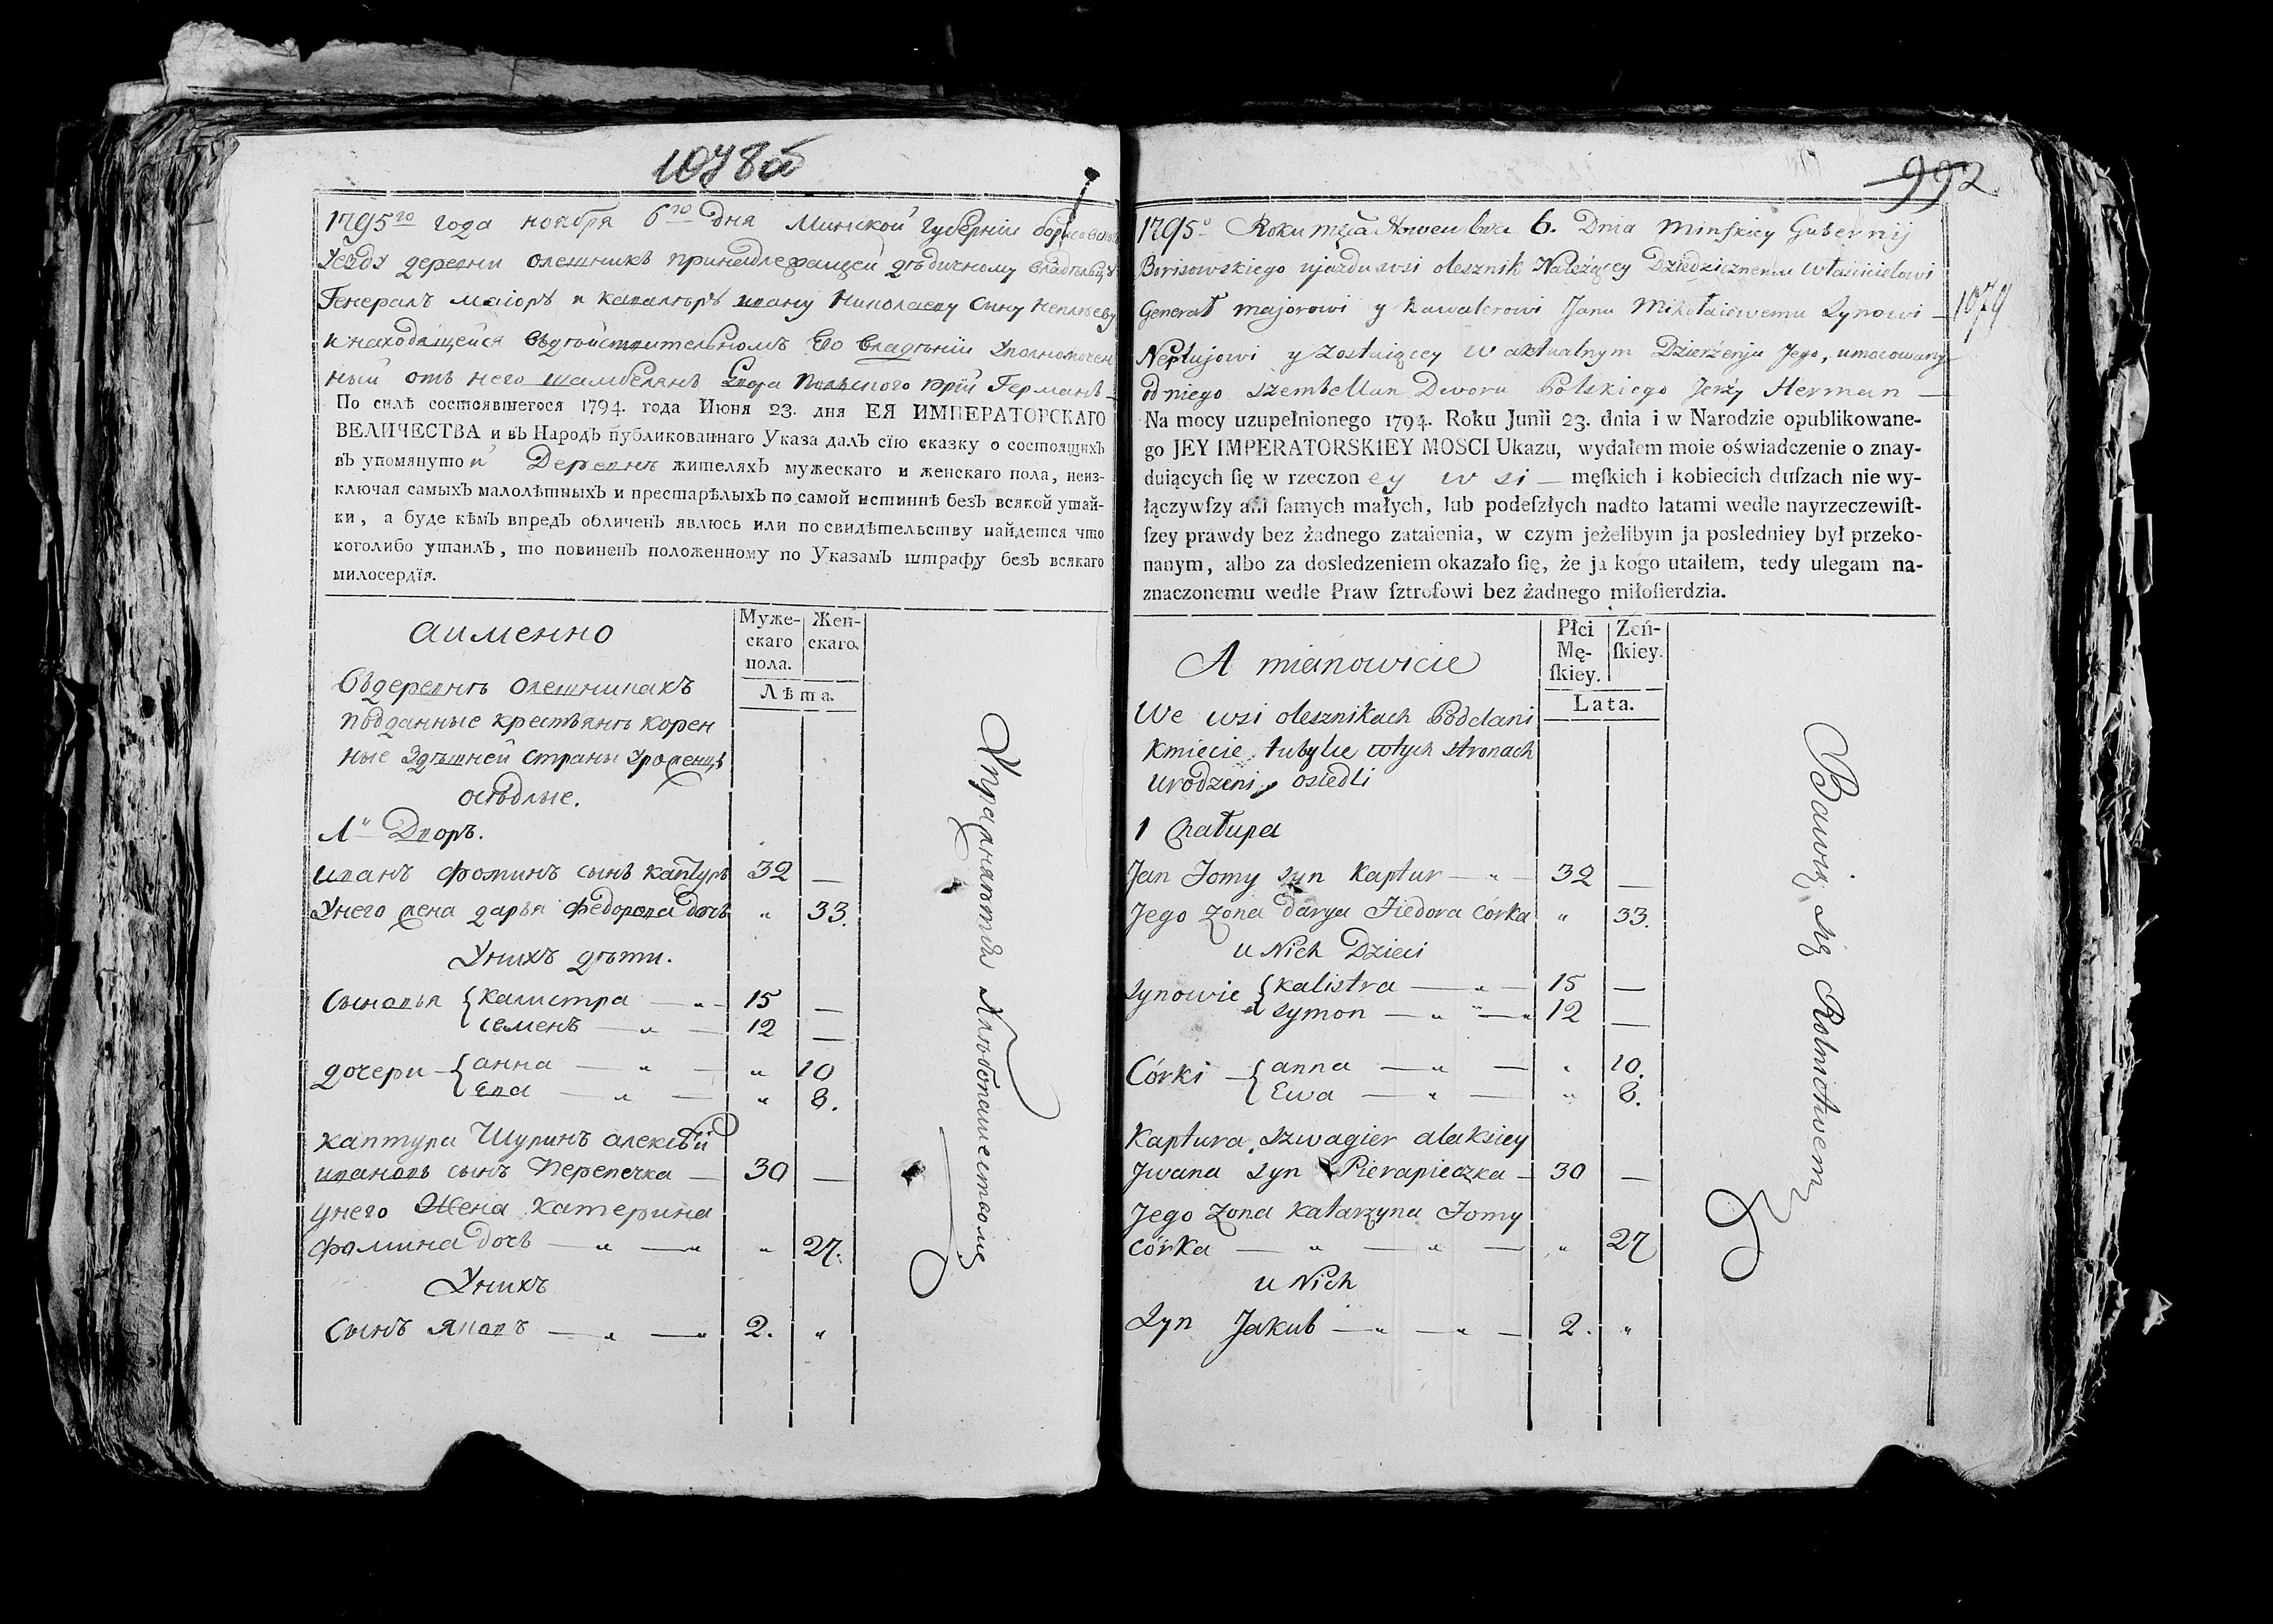 1078об
1795го года ноября 6го Дня Минской Губернiи борисовскаго
уезду деревни олешникъ принадлежащей дѣдичному владѣльцу
Генералъ маiоръ и кавалѣръ ивану Николаеву Сыну Неплюеву
и находящейся въдѣйствительномъ Его владѣнiи Уполномочен
ный отъ него шамбелянъ Двора Польского Юрiй Германъ
По силѣ состоявшегося 1794. года Iюня 23. дня ЕЯ ИМПЕРАТОРСКАГО
ВЕЛИЧЕСТВА и въ Народъ публикованнаго Указа далъ сïю сказку о состоящихъ
въ упомянутой Деревнѣ жителяхъ мужескаго и женскаго пола, неиз-
ключая самыхъ малолѣтныхъ и престарѣлыхъ по самой истиннѣ безъ всякой утай-
ки, а буде кѣмъ впредь обличенъ явлюсь или по свидѣтельству найдется что
коголибо утаилъ, то повиненъ положенному по Указамъ штрафу безъ всякаго
милосердïя.
аименно
Муже-
скаго
пола.
Жен-
скаго.
Лѣта.
Въдеревнѣ Олешникахъ
подданные крестьянѣ корен
ные Здѣшней страны Уроженцы
осѣдлые.
1й Дворъ.
иванъ фоминъ сынъ каптуръ 32 —
Унего жена дарья федорова дочь " 33.
Унихъ дѣти.
Сыновья { калистра — " — 15 —
семенъ — " — 12 —
дочери { анна — " — " 10
Ева — " — " 8.
каптура Шуринъ алексѣй
ивановъ сынъ Перепечка — 30 —
унего Жена катерина
фомина дочь — " — " " 27.
Унихъ
Сынъ яковъ — " — " 2. "
Упражняются Хлѣбопашествомъ
992
1079
1795o Roku mca Nowembra 6. Dnia Minskiey Gubernij
Borisowskiego ujazdu wsi olesznik Należącey Dziedzicznemu Właścicielowi
Generał majorowi y kawalerowi Janu Mikołaiewemu Synowi —
Neplujowi y zostaiącey w aktualnym Dzierżenju Jego, umocowany
od niego szembellan Dworu Polskiego Jerży Herman —
Na mocy uzupełnionego 1794. Roku Junii 23. dnia i w Narodzie opublikowane-
go JEY IMPERATORSKIEY MOSCI Ukazu, wydałem moie oświadczenie o znay-
duiących ſię w rzeczoney wsi — męſkich i kobiecich duſzach nie wy-
łączywſzy ani ſamych małych, lub podeſzłych nadto latami wedle nayrzeczewiſt-
ſzey prawdy bez żadnego zataienia, w czym jeżelibym ja posledniey był przeko-
nanym, albo za dosledzeniem okazało ſię, że ja kogo utaiłem, tedy ulegam na-
znaczonemu wedle Praw ſztrofowi bez żadnego miłoſierdzia.
A mianowicie
Płci
Mę-
ſkiey.
Zeń-
ſkiey.
Lata.
We wsi olesznikach Poddani
Kmiecie tubylce wtych stronach
urodzeni y osiedli
1 Chałupa
Jan Tomy syn Kaptur — " — 32 —
Jego Zona darya Fiedora córka " 33.
u Nich Dzieci
Synowie { kalistra — " — 15 —
Symon — " — " 12 —
Córki { anna — " — " 10.
Ewa — " — " 8.
Kaptura Szwagier alaksiey
Jwana Syn Pierapieczka — 30 —
Jego Zona Katarzyna Tomy
córka — " — " — " 27
u Nich
Syn Jakub — " — " — 2. "
Bawią się Rolnictwem